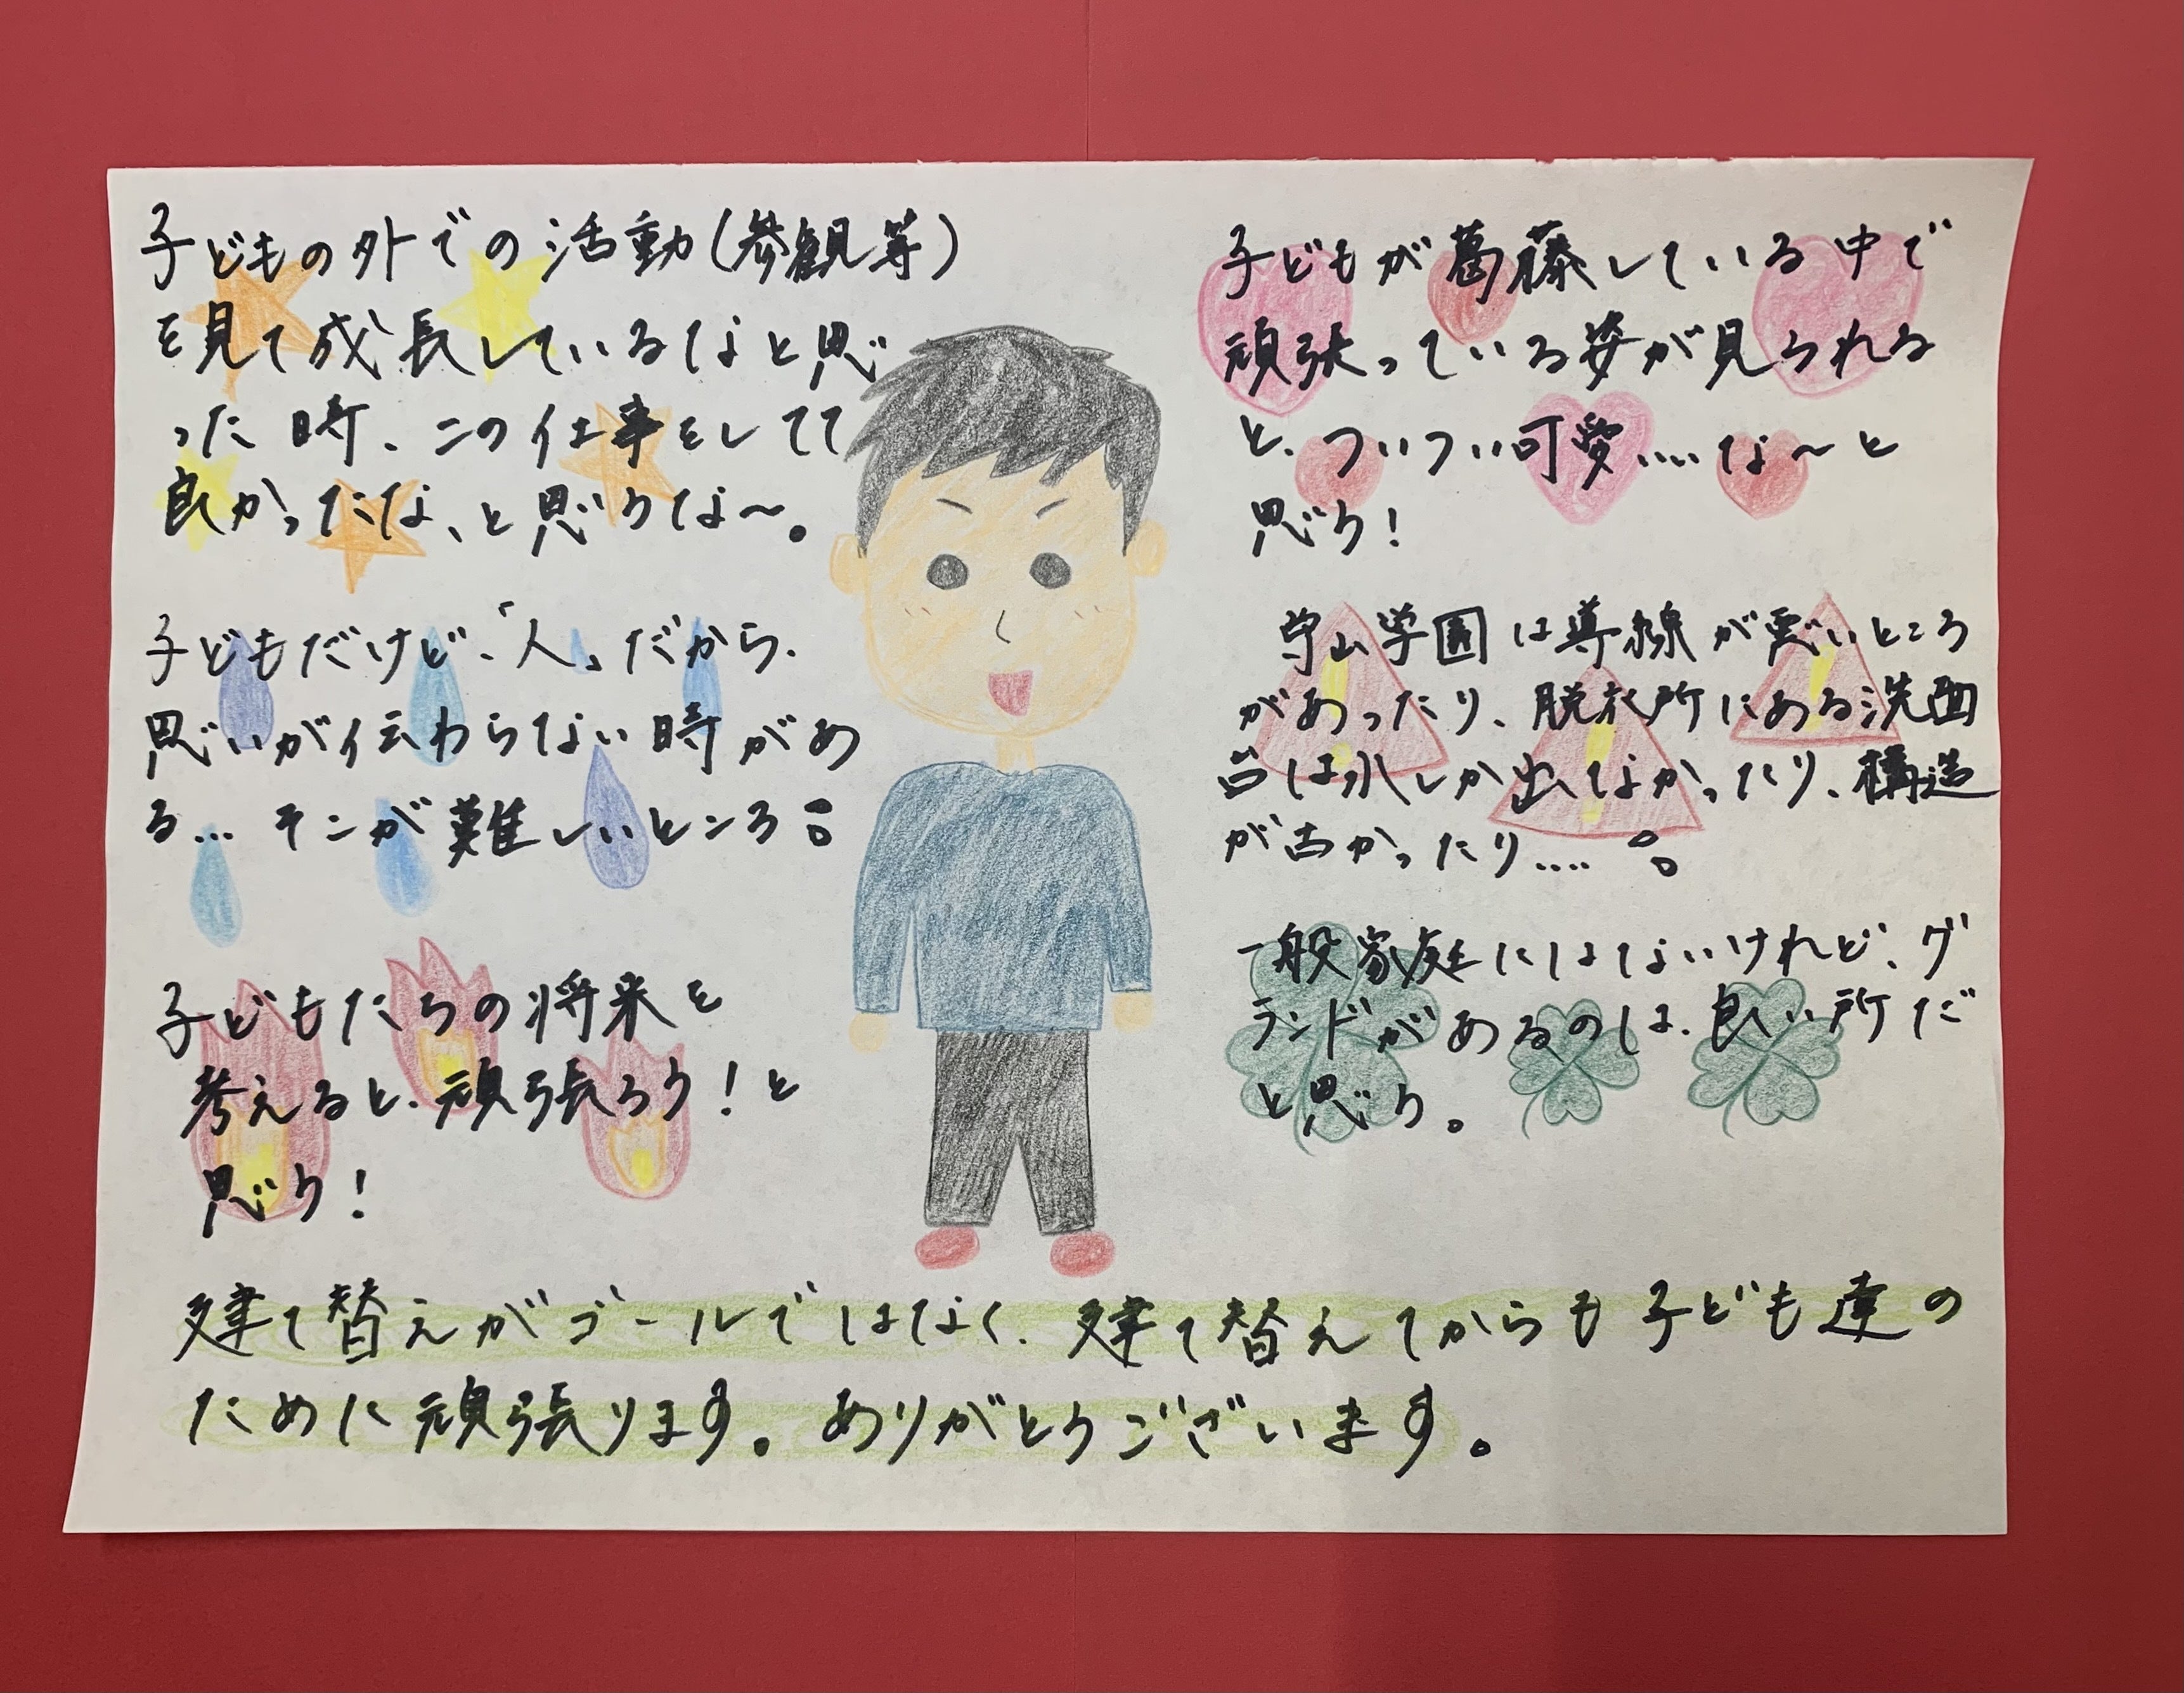 子どもの外での活動(参観等)
を見て成長しているなと思
った時、この仕事をしてて
良かったな、と思うな～。
子どもだけど、「人」だから、
思いが伝わらない時があ
る… そこが難しいところ。
子どもたちの将来を
考えると、頑張ろう！と
思う！
子どもが葛藤している中で
頑張っている姿が見られる
と、ついつい可愛……な～と
思う！
守山学園は導線が悪いところ
があったり、脱衣所にある洗面
台は水しか出なかったり、構造
が古かったり…。
一般家庭にはないけれど、グ
ランドがあるのは、良い所だ
と思う。
建て替えがゴールではなく、建て替えてからも子ども達の
ために頑張ります。ありがとうございます。